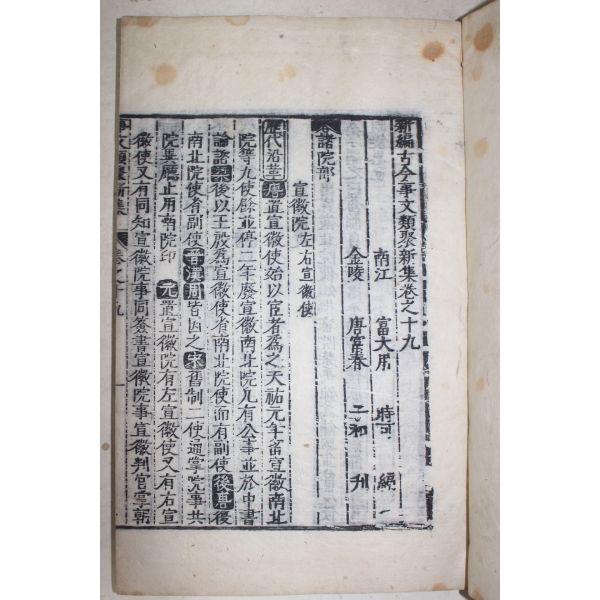 新編古今事文類聚新集卷之十九
南江 富大用 時可 編
金陵 唐富春 子和 刊
諸院部
宣徽院 左右宣徽使
歷代沿革 唐置宣徽使始以宦者爲之天祐元年留宣徽南北
院等九使餘並停二年廢宣徽南北院凡有公事並於中書
論諮梁後以王殷爲宣徽使有南北院使而有副使後唐後
南北院使有副使晉漢周皆因之宋舊制二使通掌院事共
院異廳止用南院印 元置宣徽院有左宣徽使又有右宣
徽使又有同知宣徽院事同簽書宣徽院事宣徽判官寧朝
事文類聚新集 卷之十九 一